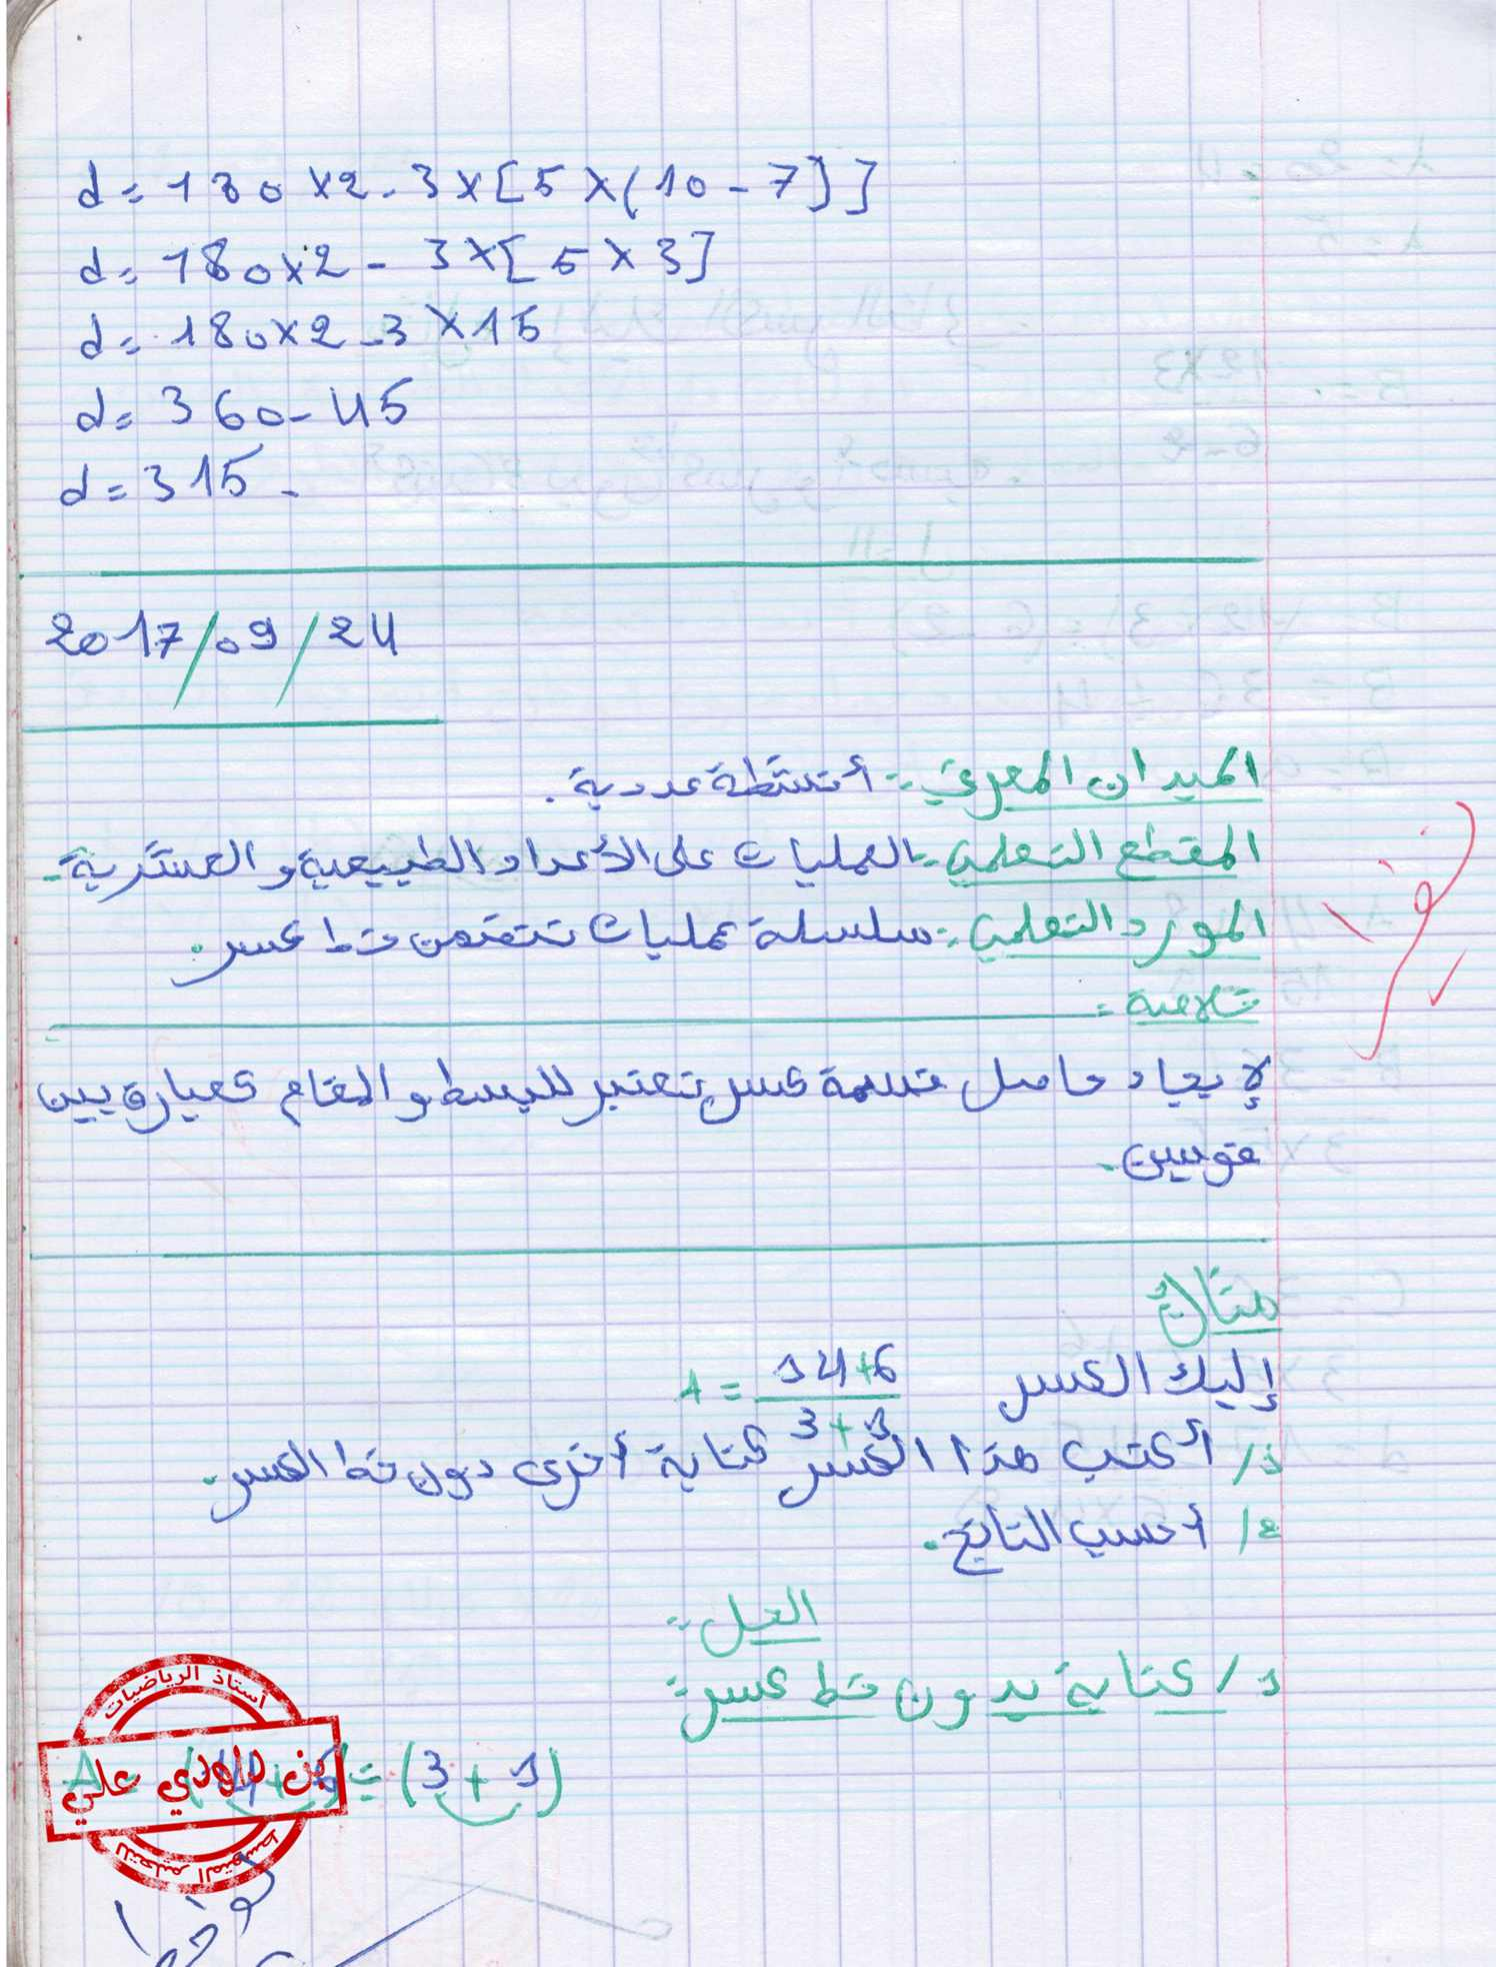 d = 180 × 2 - 3 × [5 × (10 - 7)]]
d = 180 × 2 - 3 × [5 × 3]
d = 180 × 2 - 3 × 15
d = 360 - 45
d = 315 -
2017/09/24
الميدان المعرفي :- أنشطة عددية .
المقطع التعلمي :- العمليات على الأعداد الطبيعية و العشرية -
المورد التعلمي :- سلسلة عمليات تتضمن خط كسر .
خلاصة =
لإيجاد حاصل قسمة كسر تعتبر للبسط و المقام كعبارة بين
قوسين .
مثال
إليك الكسر A = 14+6
3+1
1/ أكتب هذا الكسر كتابة أخرى دون خط الكسر .
2/ أحسب الناتج .
الحل :-
1/ كتابة بدون خط كسر :-
÷ (3 + 1)
أستاذ الرياضيات
علي
للتعليم المتوسط